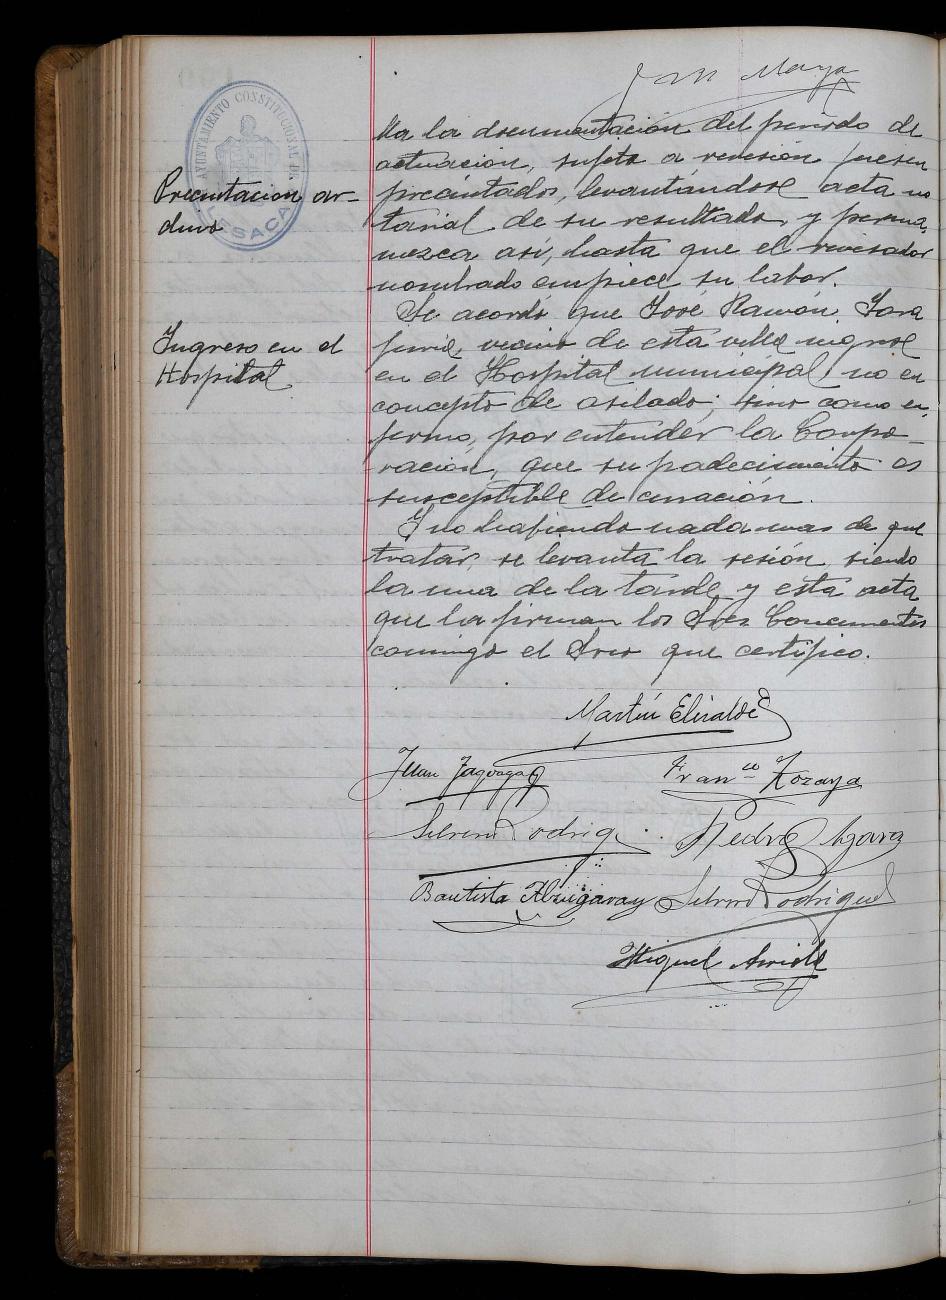 José Maya
AYUNTAMIENTO CONSTITUCIONAL DE
LESACA
Precintacion ar-
chivo
da la documentación del periodo de
actuación, sujeta a revisión fuesen
precintados, levantándose acta no
tarial de su resultado y perma,
nezca así, hasta que el revisador
nombrado empiece su labor.
Ingreso en el
Hospital
Se acordó que José Ramón
vecino de esta villa ingrese
en el Hospital municipal no en
concepto de asilado; sino como en,
fermo, por entender la Corpo-
ración, que su padecimiento es
susceptible de curación.
Y no habiendo nada mas de que
tratar, se levanta la sesión, siendo
la una de la tarde y esta acta
que la firman los Sres Concurrentes
conmigo el Srio que certifico.
Martín Elizalde
Juan
Franco Kozaya
Silverio Rodrig
Pedro
Bautista
Silverio Rodriguez
Miguel